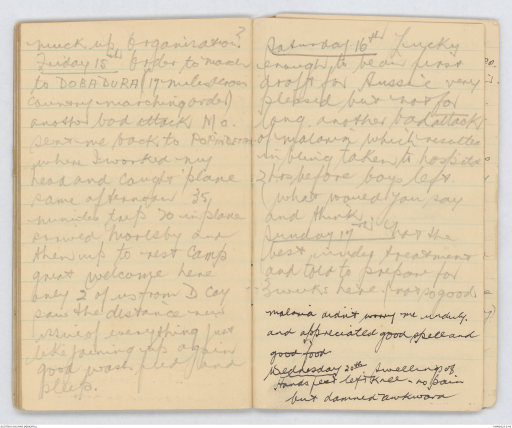 muck up Organisation?
Friday 15th Order to march
to DOBADURA (17 miles across
country marching order)
another bad attack M.O.
sent me back to POPONDETTA
where I worked my
head and caught plane
same afternoon 35
minutes trip 20 in plane
arrived Moresby and
then up to rest camp
great welcome here
only 2 of us from D Coy
saw the distance new
issue of everything just
like joining up again
good wash, feed and
sleep.
Saturday 16th Lucky
enough to be in first
draft for Aussie very
pleased but not for
long another bad attack
of malaria which resulted
in being taken to hospital
2 hrs before boys left
(what would you say
and think
Sunday 17th Got the
best under treatment
and told to prepare for
3 weeks here (not so good
malaria didn't worry me unduly
and appreciated good spell and
good food
Wednesday 20th Swelling of
hands feet left knee - no pain
but damned awkward